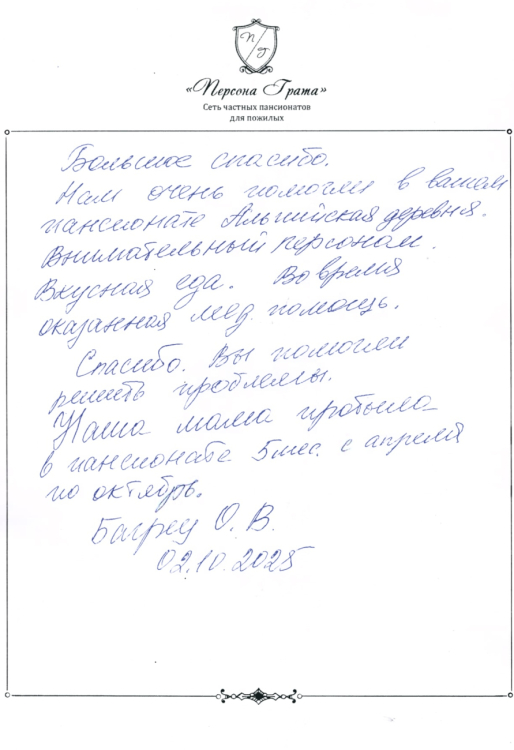 П/Г
«Персона Грата»
Сеть частных пансионатов
для пожилых
Большое спасибо.
Нам очень помогли в вашем
пансионате Альпийская деревня.
Внимательный персонал.
Вкусная еда. Вовремя
оказанная мед. помощь.
Спасибо. Вы помогли
решить проблемы.
Наша мама пробыла
в пансионате 5 мес. с апреля
по октябрь.
Багрец О. В.
02.10.2025